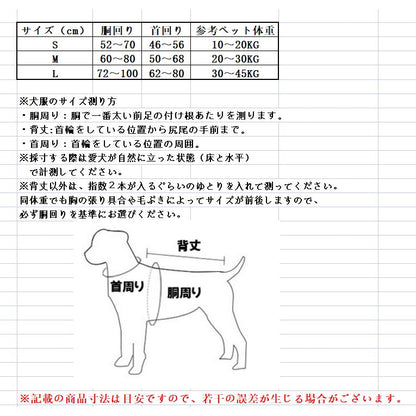 サイズ（cm） 胴回り 首回り 参考ペット体重
S 52～70 46～56 10～20KG
M 60～80 50～68 20～30KG
L 72～100 62～80 30～45KG
※犬服のサイズ測り方
・胴周り：胴で一番太い前足の付け根あたりを測ります。
・背丈：首輪をしている位置から尻尾の手前まで。
・首周り：首輪をしている位置の周囲。
※採寸する際は愛犬が自然に立った状態（床と水平）
で計測してください。
※背丈以外は、指数２本が入るぐらいのゆとりを入れて測ってください。
同体重でも胸の張り具合や毛ぶきによってサイズが前後しますので、
必ず胴回りを基準にお選びください。
背丈
首周り
胴周り
※記載の商品寸法は目安ですので、若干の誤差が生じる場合がございます。